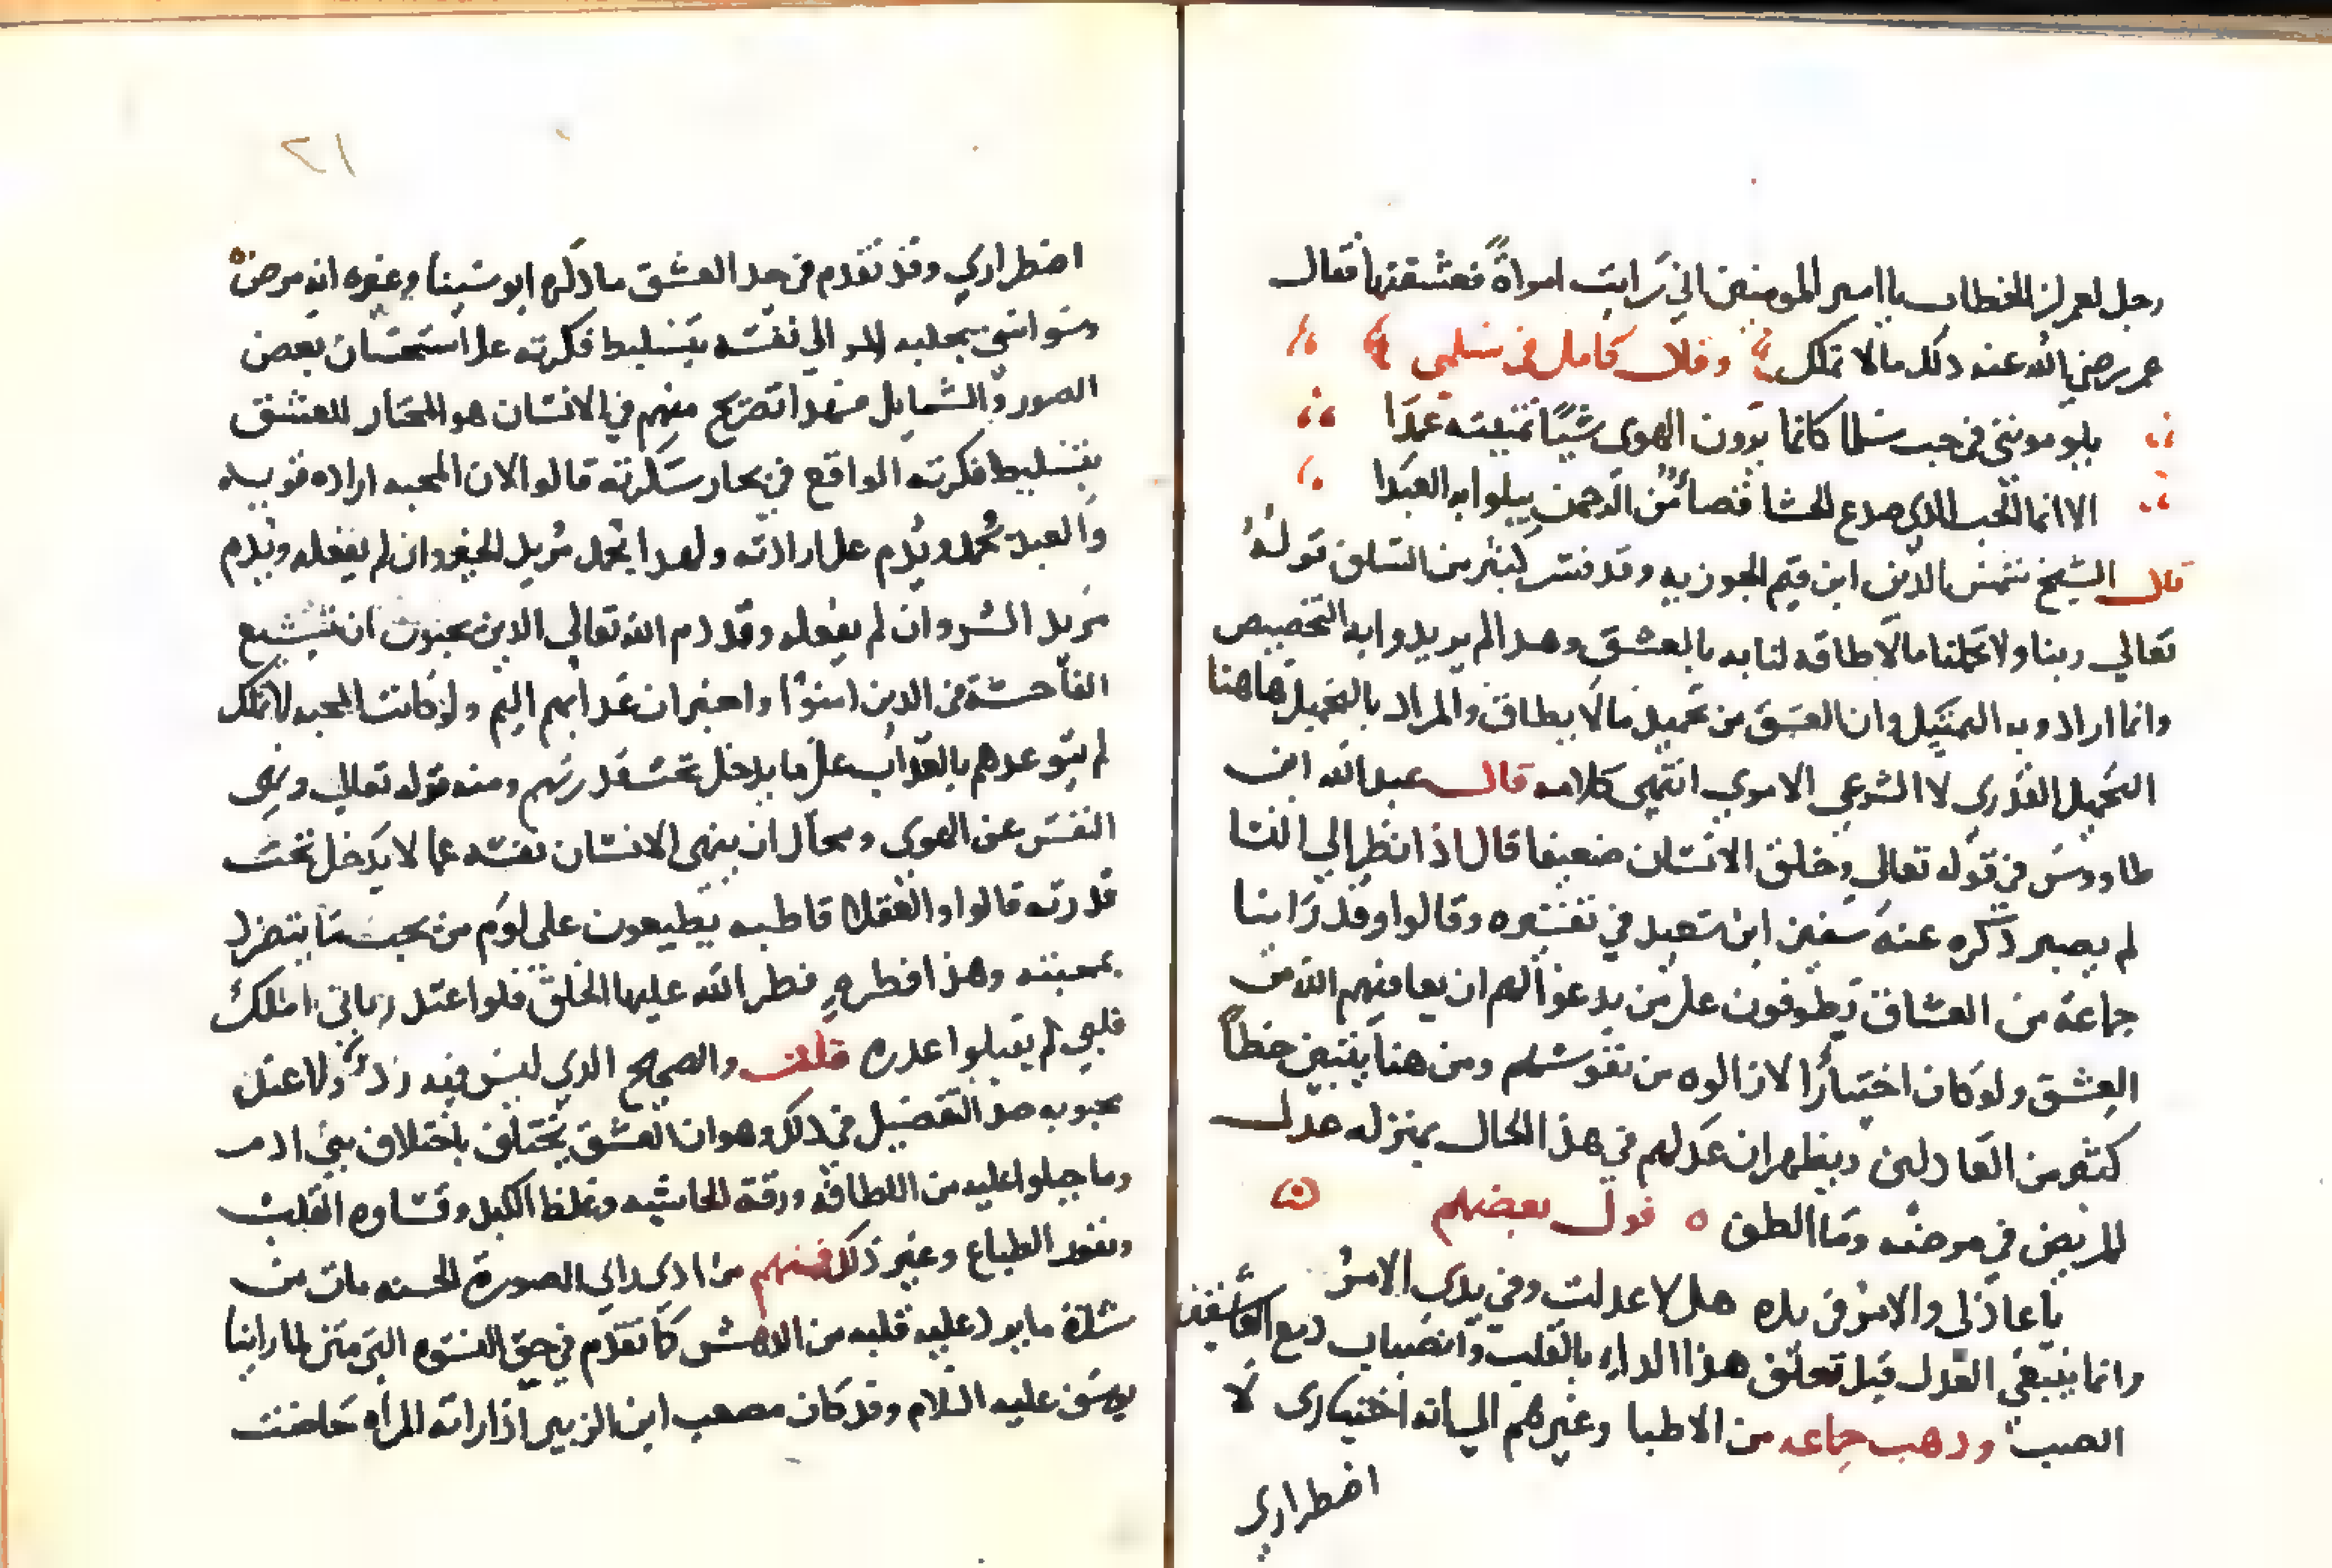 رجل لعمر بن الخطاب يا امير المومنين اني رايت امراة فعشقتها فقال
عمر رضي الله عنه ذلك ما لا تملك وقال كامل في سلمى
يلومونني في حب سلما كانما يرون الهوى شيًا تيممته عمدًا
الا انما الحب الذي صدع الحشا قضا من الرحمن يبلوا به العبدا
قال الشيخ شمس الدين ابن قيم الجوزيه وقد فسر كثير من السلف قوله
تعالي ربنا ولا تحملنا ما لا طاقه لنا به بالعشق وهدا لم يريدوا به التخصيص
وانما ارادو به التمثيل وان العشق من تحميل ما لا يطاق والمراد بالتحميل هاهنا
التحميل القدرى لا الشرعي الاموي انتهى كلامه قال عبد الله ابن
طاووس في قوله تعالي وخلق الانسان ضعيفا قال اذا نظر الي النسا
لم يصبر ذكره عنه سفين ابن سعيد في تفسيره وقالوا وقد راينا
جماعة من العشاق يطوفون علي من يدعوا لهم ان يعافيهم الله من
العشق ولو كان اختيارًا لازالوه من نفوسهم ومن هنا يتبين خطاً
كثير من العادلين ويظهر ان عدلهم في هذ الحال بمنزله عدل
المريض في مرضه وما الطف ه قول بعضهم
يا عاذلي والامر في يده هلا عدلت وفي يدي الامر
وانما ينبغي العدل قبل تعلق هذا الداء بالقلب وانصباب دمع العاشق
الصب ودهب جماعه من الاطبا وغيرهم الي انه اختيارى لا
اضطراري
٢١
اضطراري وقد تقدم في حد العشق ما ذكره ابو سينا وغيره انه مرض
وسواسي يجلبه المر الي نفسه بتسليط فكرته علي استحسان بعض
الصور والشمايل فهدا تصريح منهم في الانسان هو المختار للعشق
بتسليط فكرته الواقع في بحار سكرته قالوا لان المحبه اراده قويه
والعبد يحمد ويذم علي ارادته ولهدا يحمد مريد الخير وان لم يفعله ويذم
مريد الشر وان لم يفعله وقد ذم الله تعالي الدين يحبون ان تشيع
الفاحشة في الدين امنوا واخبر ان عدابهم اليم ولو كانت المحبه لا تملك
لم يتوعدهم بالعداب علي ما يدخل تحت قدرتهم ومنه قوله تعالي ونهى
النفس عن الهوى ومحال ان ينهى الانسان نفسه عما لا يدخل تحت
قدرته قالوا والعقلا قاطبه يطيعون علي لوم من يحب ما يتضرر
بمحبته وهذا فطره فطر الله عليها الخلق فلو اعتدر باني املك
قلبي لم يقبلوا عدره قلت والصحيح الدي ليس فيه رد ولا عتل
محبوبه صد التفصيل في ذلك وهو ان العشق يختلف باختلاف بني ادم
وما جبلوا عليه من اللطافه ورقة الحاشيه وغلظ الكبد وقساوه القلب
ونفور الطباع وغير ذلك فمنهم من اذى راي الصورة الحسنه مات من
شدة ما يرد عليه قلبه من الدهش كما تقدم في حق النسوه التي متن لما راينا
يوسف عليه السلام وقد كان مصعب ابن الزبير اذا راته المراه حاضت